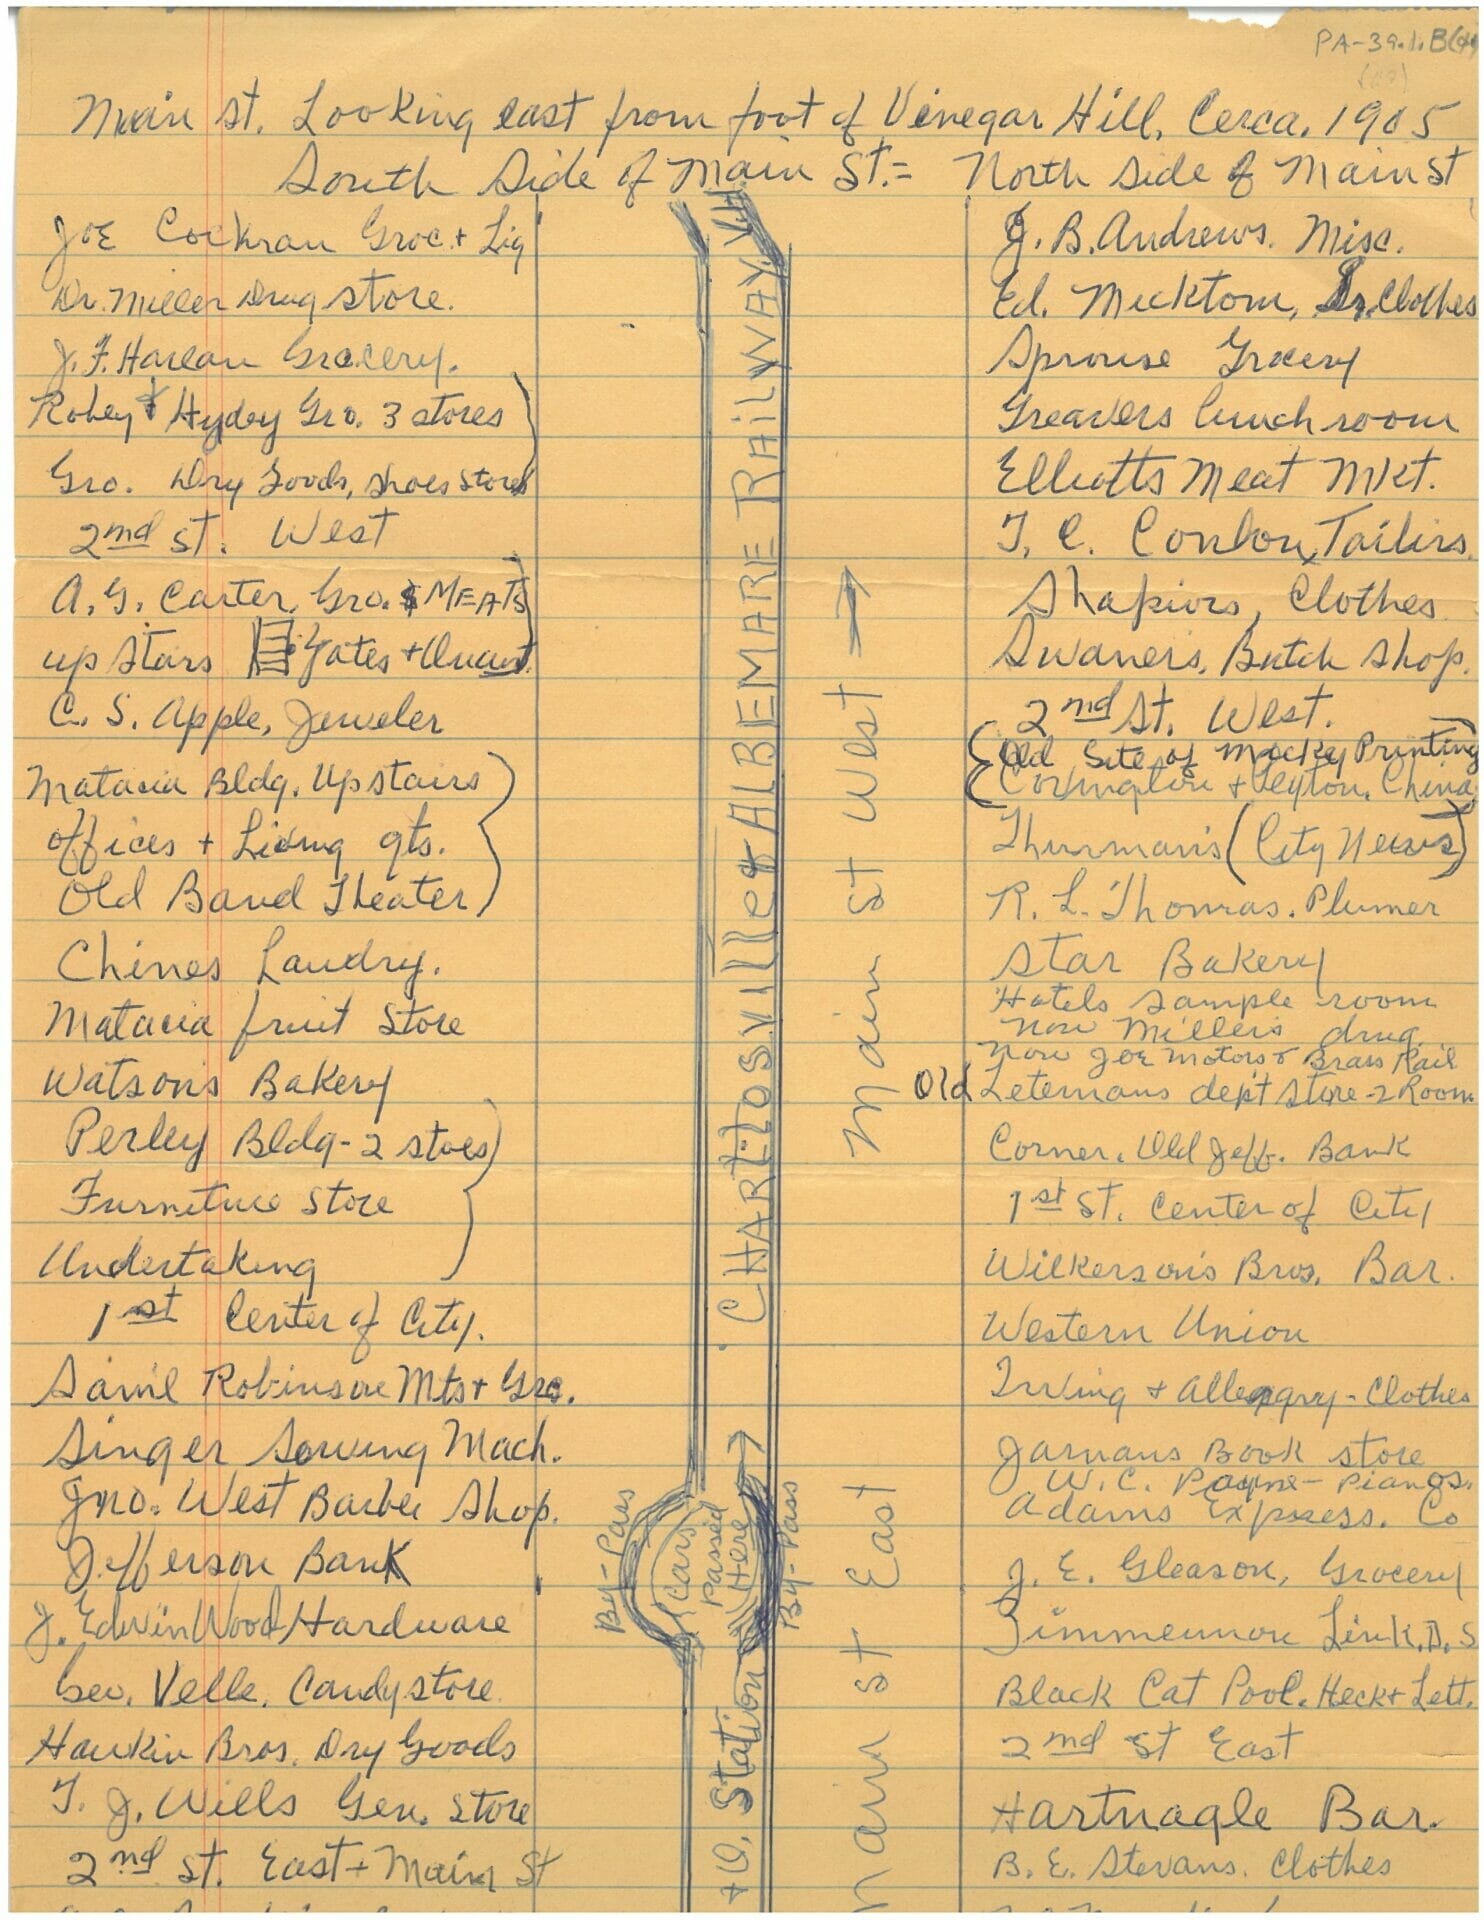 PA-39.1.B
Main St. Looking east from foot of Vinegar Hill, Cerca, 1905
South Side of Main St.=
North Side of Main St
Joe Cockran Groc. + Liq
Dr. Miller Drug store.
J. F. Harlan Grocery.
Robey & Hydey Gro. 3 stores
Gro. Dry Goods, shoes stores
2nd St. West
A. G. Carter, Gro. & MEATS
up stars Yates +
C. S. Apple, Jeweler
Matacia Bldg. Upstairs
offices + Living qts.
Old Band Theater
Chines Laundry.
Matacia fruit Store
Watsons Bakery
Perley Bldg - 2 stoes
Furniture Store
Undertaking
1st Center of City.
Saml Robinson Mts + Gro.
Singer Sowing Mach.
Jno. West Barber Shop.
Jefferson Bank
J. Edwin Wood Hardware
Geo. Velle. Candy store
Hankin Bros. Dry Goods
T. J. Wills Gen. Store
2nd St. East + Main St
V.H.
CHARLTTOSVille & ALBEMARE RAILWAY
By-Pass
Cars
Passed
Here
By-Pass
+ O. Station
Main St West
Main St East
J. B. Andrews. Misc.
Ed. Mecktom, Sr. Clothes
Sprouse Grocery
Greavers lunch room
Elliotts Meat Mkt.
T. C. Conlon, Tailirs.
Shapiors, Clothes
Swaners, Butch Shop.
2nd St. West.
Old Site of Micky Printing
Covington + Peyton. China
Thurman's (City News)
R. L. Thomas. Plumer
Star Bakery
Hotels Sample room
Now Millers drug
Now Joe Motors & Brass Rail
Old Letermans dep't Store - 2 Room
Corner. Old Jeff. Bank
1st St. Center of City
Wilkerson's Bros. Bar.
Western Union
Irving + - Clothes
Jarmans Book store
W. C. Payne - Pianos.
Adams Express. Co
J. E. Gleason, Grocery
Zimmermon Link. D. S
Black Cat Pool. Heck + Lett.
2nd St East
Hartnagle Bar.
B. E. Stevans. Clothes